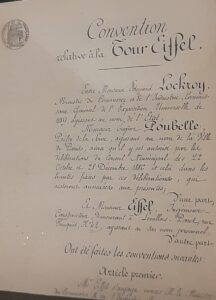 Convention
relative à la Tour Eiffel.
Entre Monsieur Edouard Lockroy,
Ministre du Commerce et de l'Industrie, Commissaire
Général de l'Exposition Universelle de
1889 agissant au nom de l'Etat,
Monsieur Eugène Poubelle,
Préfet de la Seine, au nom de la Ville
de Paris, ainsi qu'il est autorisé par les
délibérations du Conseil Municipal des 22
Octobre et 28 Décembre 1886 et cela dans les
limites fixées par ces délibérations, qui
resteront annexées aux présentes;
D'une part,
Et Monsieur Eiffel, Ingénieur-
Constructeur, demeurant à Levallois-Perret, rue
Fouquet N° agissant en son nom personnel
D'autre part.
Ont été faites les conventions suivantes:
Article premier.
Mr Eiffel s'engage envers